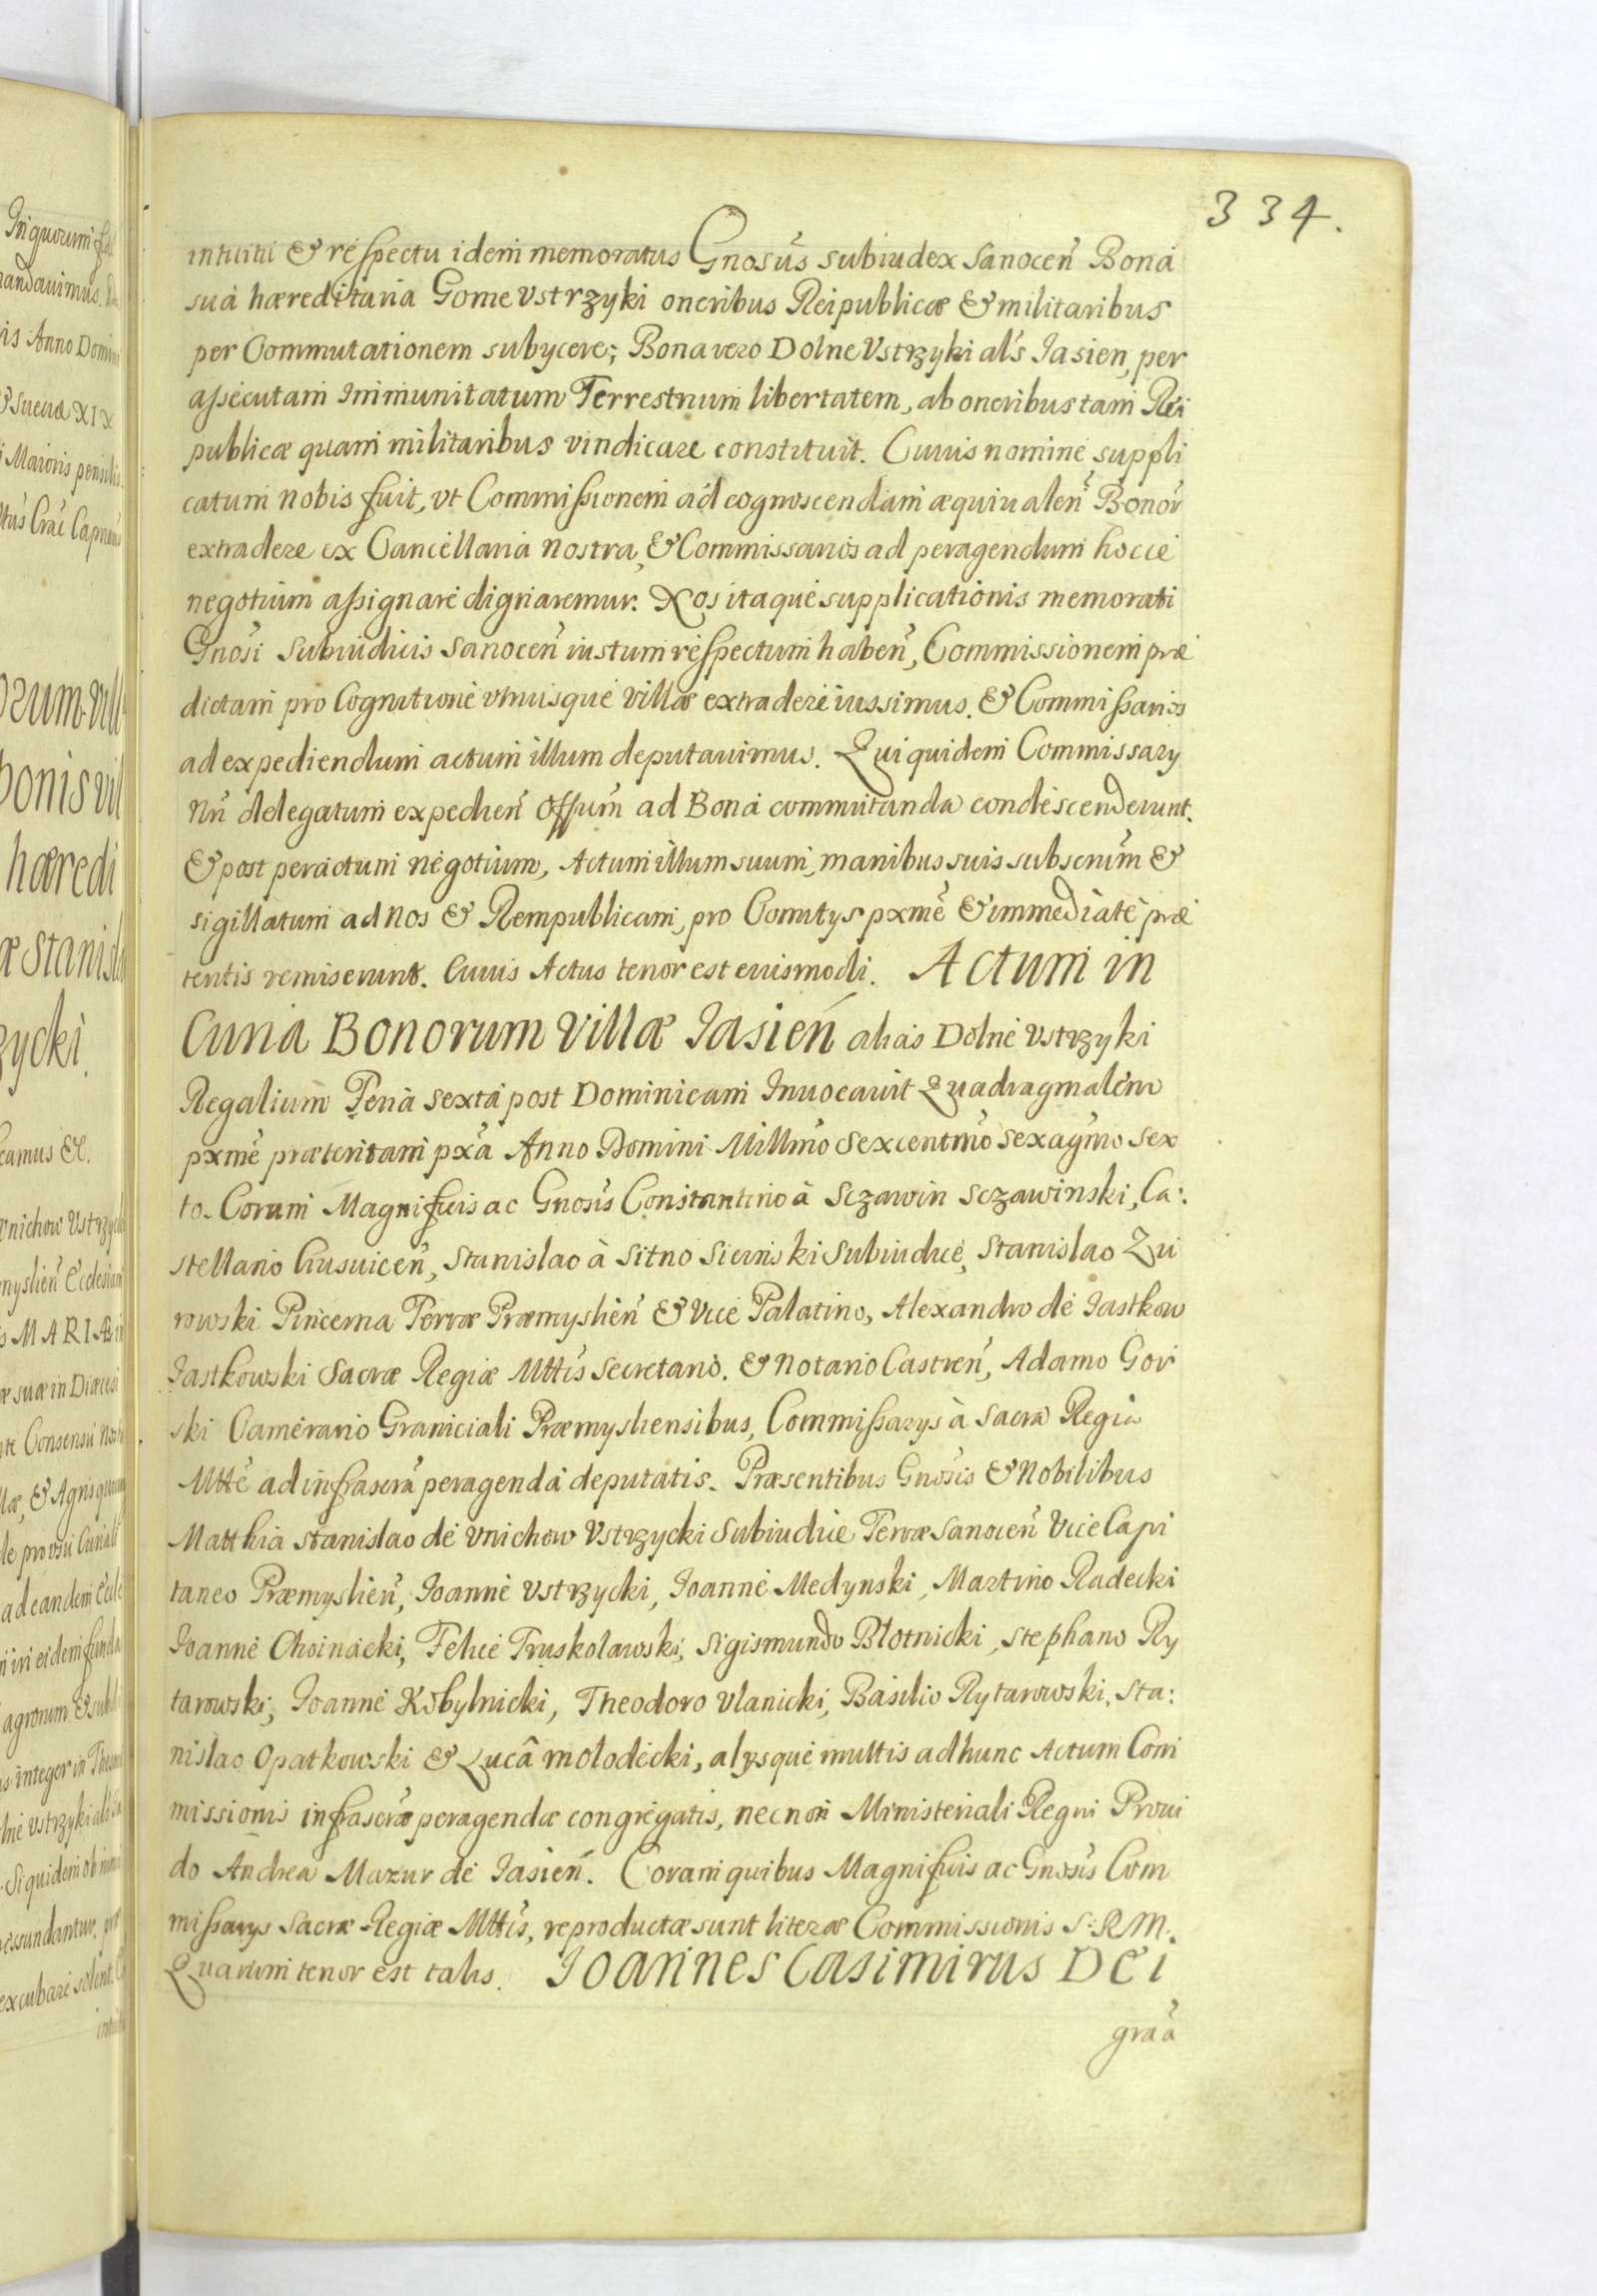 334.
intuitu & respectu idem memoratus Gnosus subiudex Sanocen Bona
sua hæreditaria Gorne Vstrzyki oneribus Reipublicæ & militaribus
per Commutationem subycere; Bona vero Dolne Vstrzyki als Iasien, per
assecutam Immunitatum Terrestrium libertatem, ab oneribus tam Rei
publicæ quam militaribus vindicare constituit. Cuius nomine suppli
catum nobis fuit, vt Commissionem ad cognoscendam æquiualen Bonor
extradere ex Cancellaria nostra, & Commissarios ad peragendum hocce
negotium assignare dignaremur. Nos itaque supplicationis memorati
Gnosi Subiudicis Sanocen iustum respectum haben, Commissionem præ
dictam pro Cognitione vtriusque villæ extradere iussimus. & Commissarios
ad expediendum actum illum deputauimus. Qui quidem Commissary
Nri delegatum expedien Offum ad Bona commutanda condescenderunt.
& post peractum negotium, Actum illum suum, manibus suis subscrum &
sigillatum ad nos & Rempublicam, pro Comitys pxme & immediate præ
tentis remiserunt. Cuius Actus tenor est eiusmodi. Actum in
Curia Bonorum Villæ Iasień alias Dolne Vstrzyki
Regalium Feria sexta post Dominicam Inuocauit Quadragmalem
pxme præteritam pxa Anno Domini Millmo Sexcentmo Sexagmo Sex
to. Coram Magnificis ac Gnosis Constantino à Sczawin Sczawinski, Ca:
stellano Inusuicen, Stanislao à Sitno Siemiski Subiudice, Stanislao Zu
rowski Pincerna Terræ Præmyslien & Vice Palatino, Alexandro de Iastkow
Iastkowski Sacræ Regiæ Mttis Secretario. & Notario Castren, Adamo Gor
ski Camerario Graniciali Præmysliensibus, Commissarys à Sacra Regia
Mtte ad infrascra peragenda deputatis. Præsentibus Gnosis & Nobilibus
Matthia Stanislao de Vnichow Vstrzycki Subiudice Terræ Sanocen Vice Capi
taneo Præmyslien, Ioanne Vstrzycki, Ioanne Medynski, Martino Radecki
Ioanne Choinacki, Felice Truskolawski, Sigismundo Błotnicki, Stephano Ry
tarowski, Ioanne Kobylnicki, Theodoro Vlanicki, Basilio Rytarowski, Sta:
nislao Opatkowski & Lucâ Mołodecki, alysque multis ad hunc Actum Com
missionis infrascræ peragendæ congregatis, nec non Ministeriali Regni Proui
do Andrea Mazur de Iasień. Coram quibus Magnificis ac Gnosis Com
missarys Sacræ Regiæ Mttis, reproductæ sunt literæ Commissionis S:RM:
Quarum tenor est talis. Ioannes Casimirus Dei
graa